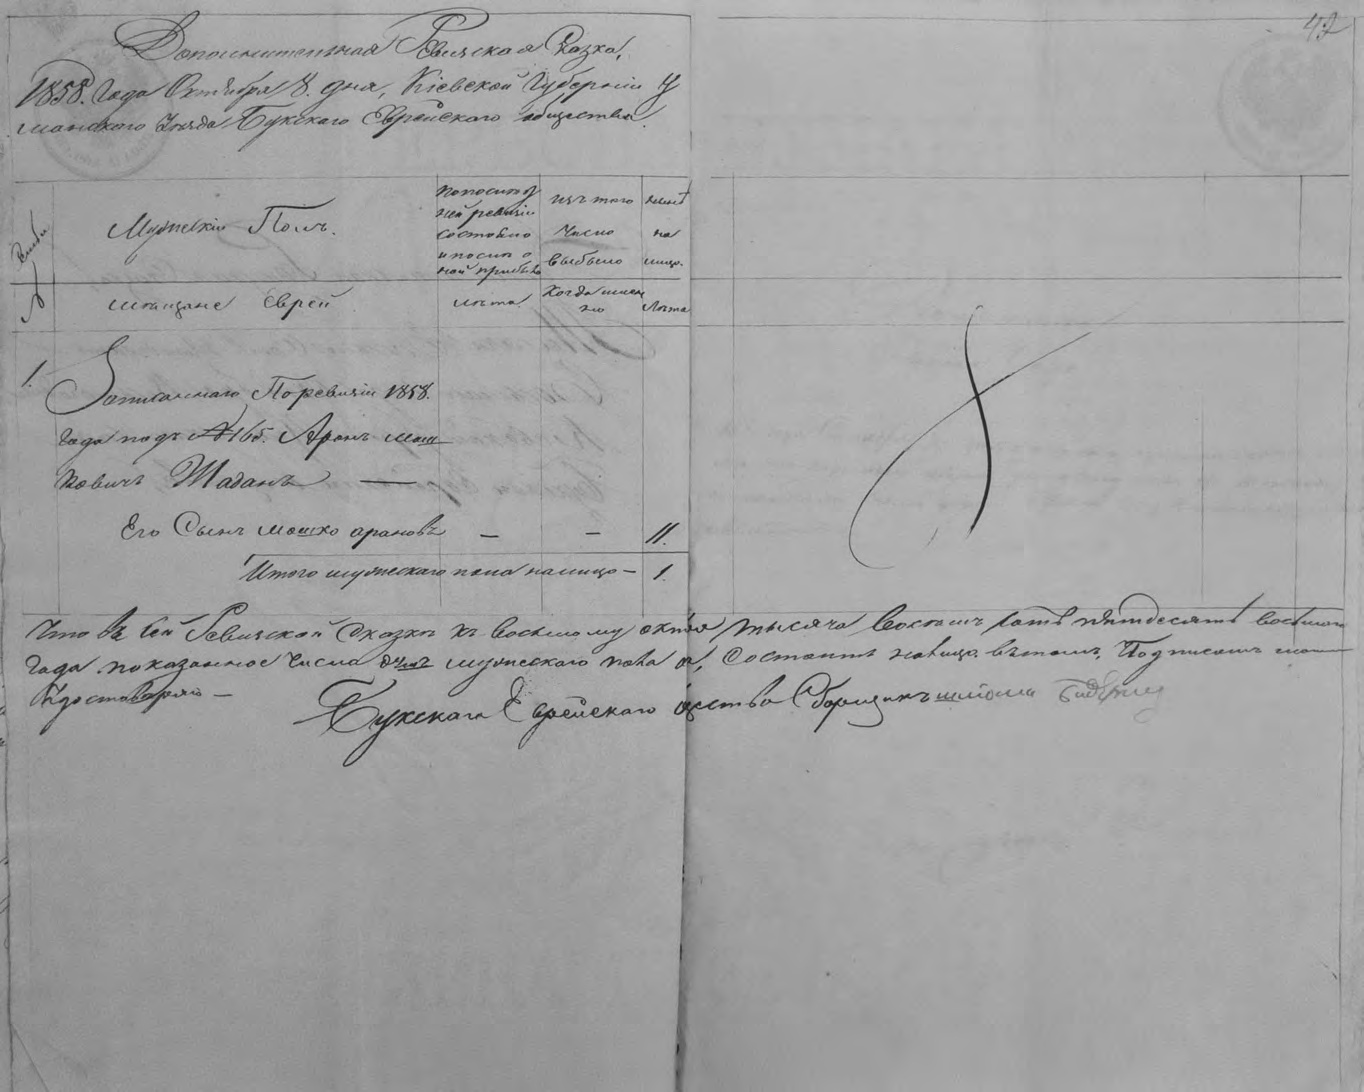 42
Дополнительная Ревизская Сказка,
1858. Года Октября 8. дня, Кіевской Губерніи У
манского Уезда Букского Еврейского общества.
Мужескій Полъ.
по послед
ней ревизіи
состояло
и после о
ной прибыло
изъ того
число
выбыло
ныне
на
лицо.
мещане Еврей
лета.
Когда имен
но
Лета
1.
Записаннаго По ревизіи 1858.
года подъ № 165. Аронъ Мош
ковичъ Жаданъ —
Его Сынъ Мошко Арановъ — — 11.
Итого мужескаго пола налицо — 1.
Что въ сей Ревизской Сказке къ восьмому октября тысяча восемь сотъ пятдесятъ восьмого
года показанное число душъ мужескаго пола, состоитъ налицо въ томъ, Подписомъ моимъ
Удостоверяю —
Букскаго Еврейскаго общества Сборщикъ шлiома